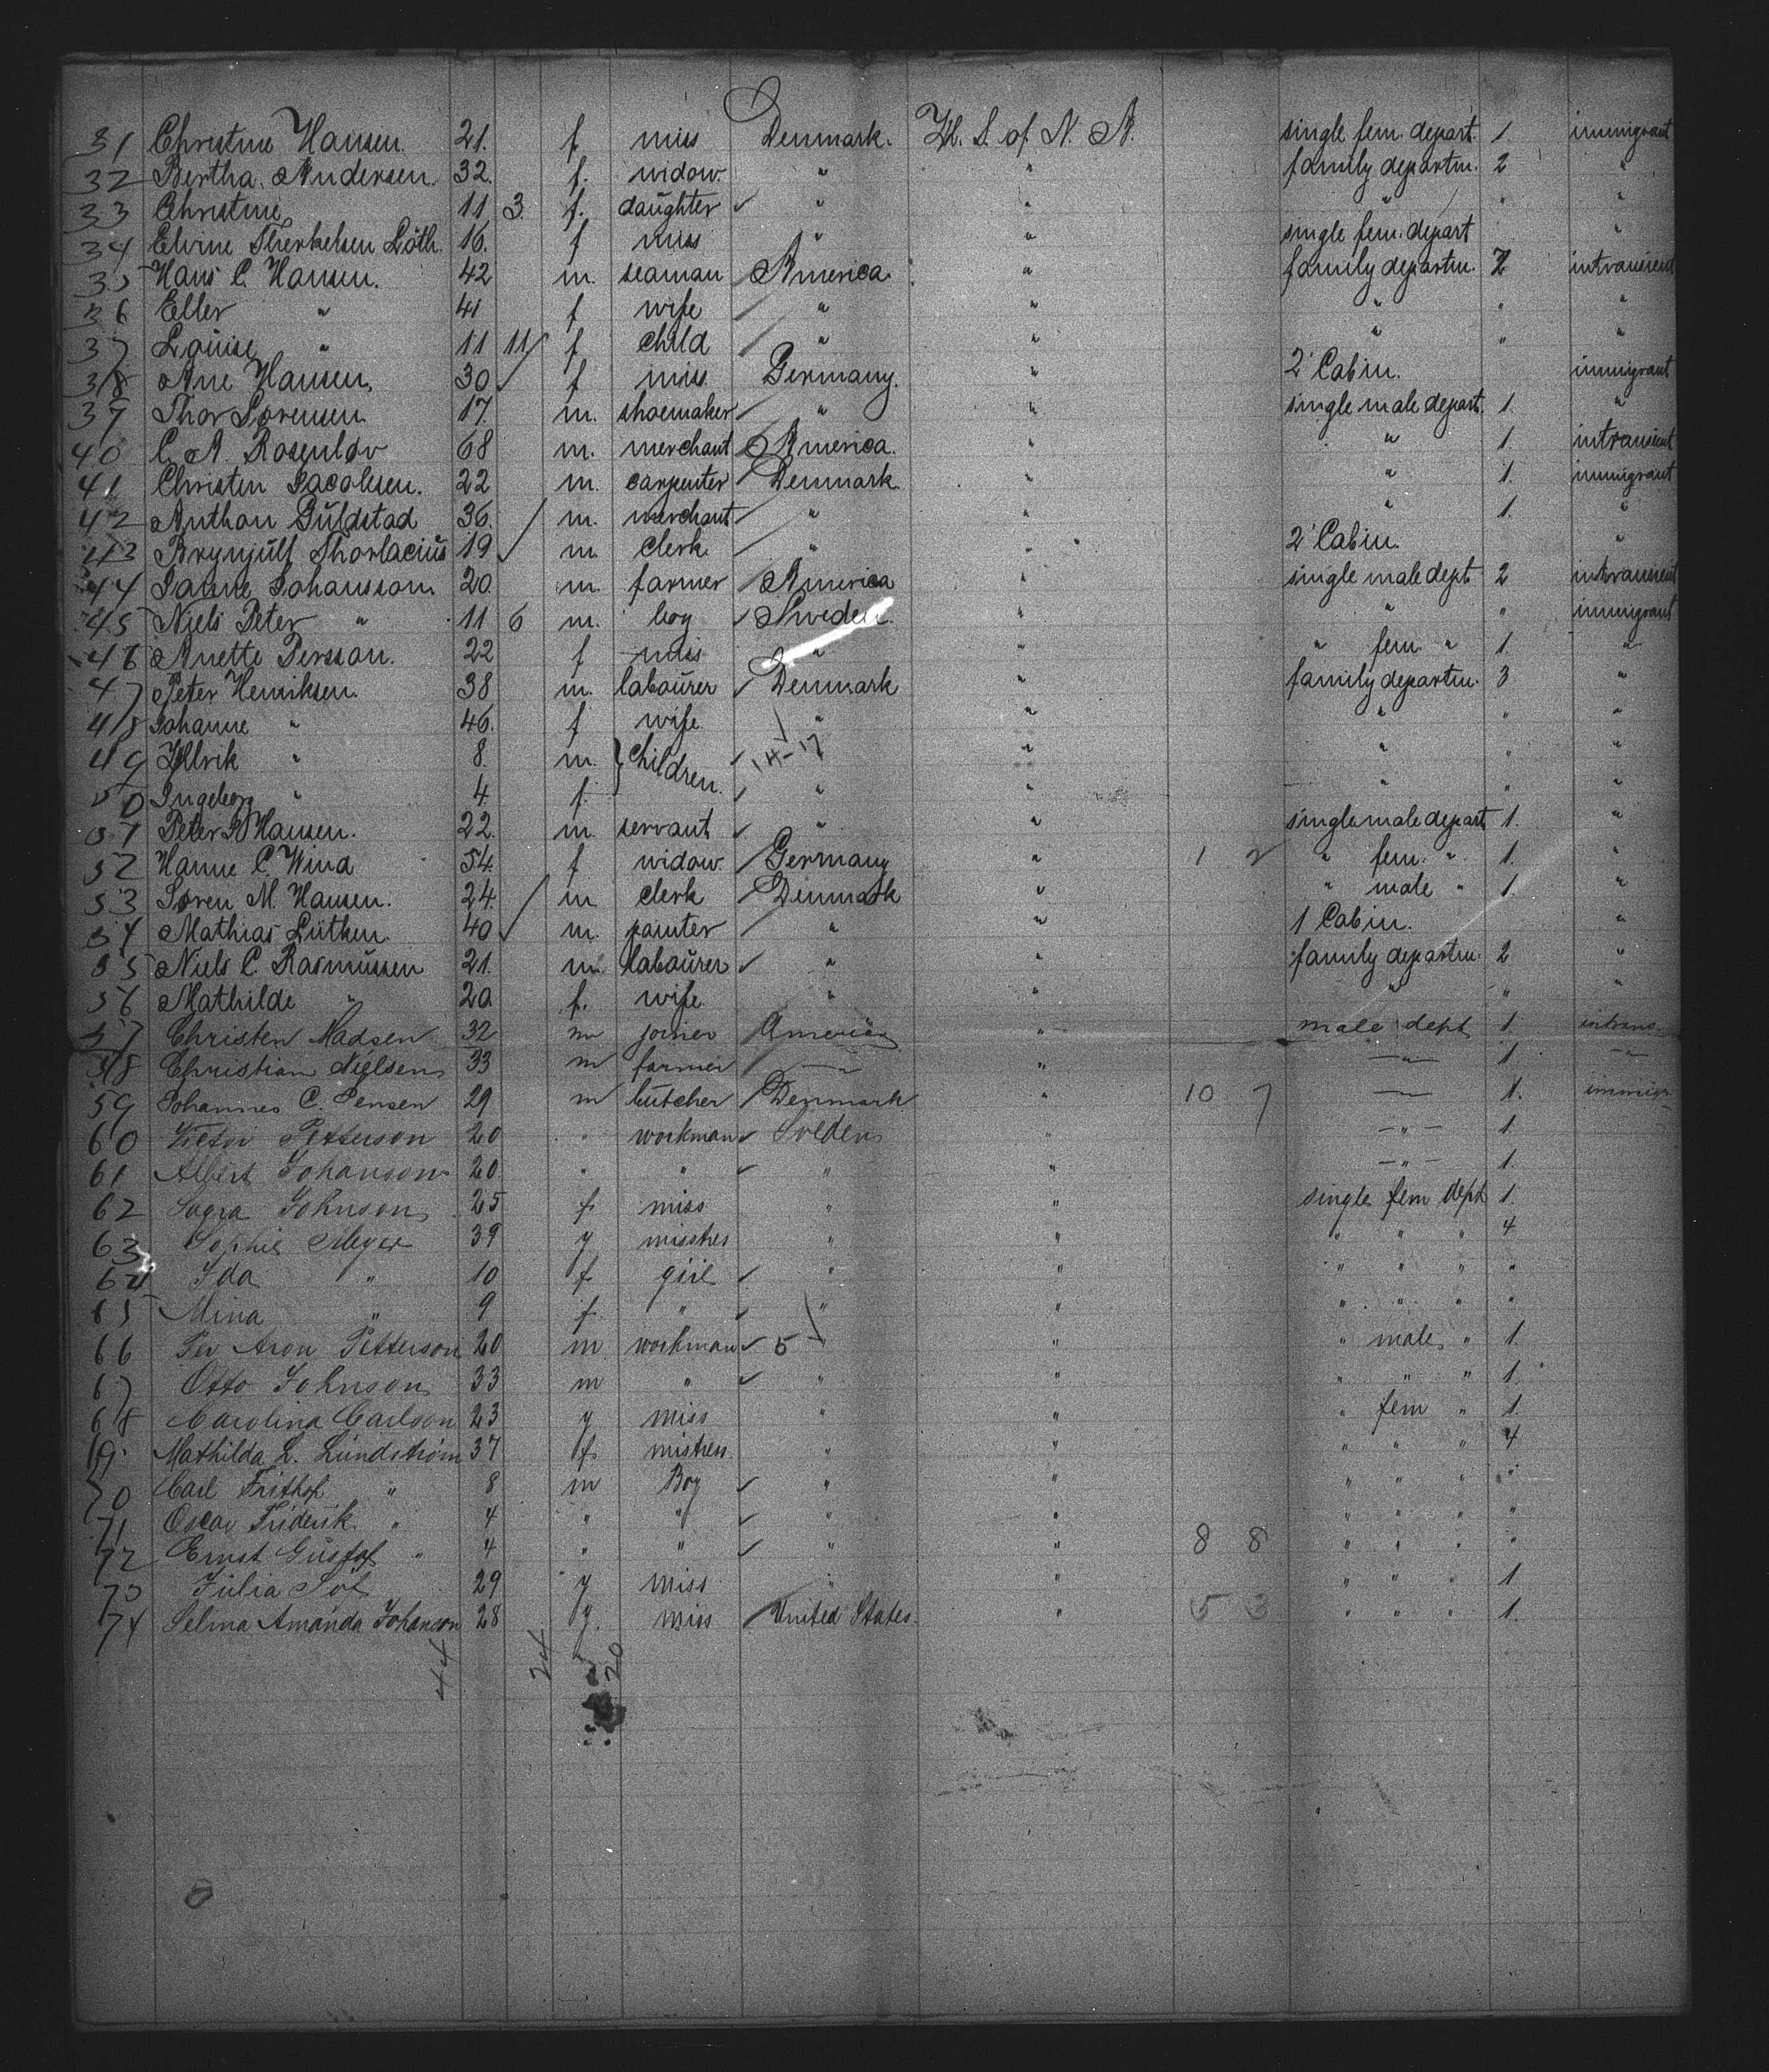 31 Christine Hansen. 21. f miss Denmark. U. S. of N. A. single fem. depart. 1 immigrant
32 Bertha Andersen. 32. f. widow " " family departm. 2 "
33 Christine 11 3 f. daughter " " " " "
34 Elvine Therkelsen Löth. 16. f miss " " single fem. depart "
35 Hans C. Hansen. 42 m. seaman America " family departm. 2 intransient
36 Ellen " 41 f wife " " " " "
37 Louise " 11 11 f child " " " " "
38 Ane Hansen, 30 f miss Germany. " 2' Cabin. immigrant
39 Thor Sørensen. 17. m. shoemaker " " single male depart. 1. "
40 C. A. Rosenløv 68 m. merchant America. " " 1. intransient
41 Christen Jacobsen. 22 m. carpenter Denmark. " " 1. immigrant
42 Anthon Guldstad 36. m. merchant " " " 1. "
43 Brynjulf Thorlacius 19 m. clerk " " 2' Cabin. "
44 Janne Johansson 20. m. farmer America " single male dept. 2 intransient
45 Niels Peter " 11 6 m. boy Sweden. " " " immigrant
46 Anette Persson. 22 f miss " " " fem. " 1. "
47 Peter Henriksen. 38 m. labourer Denmark " family departm. 3 "
48 Johanne " 46. f wife " " " " "
49 Ulrik " 8. m. } Children. 14-17 " " " "
50 Ingeborg " 4. f. " " " " "
51 Peter Hansen. 22. m. servant " " single male depart. 1. "
52 Hanne C. Wind 54. f widow. Germany " 1 2 " fem. " 1. "
53 Søren M. Hansen. 24. m clerk Denmark " " male " 1. "
54 Mathias Lütken. 40 m. painter " " 1 Cabin. "
55 Niels C. Rasmussen 21. m. labourer " " family departm. 2 "
56 Mathilde " 20. f. wife " " " " "
57 Christen Madsen 32 m joiner America " male dept 1. intrans.
58 Christian Nielsen 33 m farmer " " " 1. "
59 Johannes C. Jensen 29 m butcher Denmark " 10 7 " 1. immigr
60 Victor Petterson 20 " workman Sveden " " 1.
61 Albert Johanson 20 " " " " " 1.
62 Johnson 25 f miss " " single fem dept 1.
63 Sophie Meyer 39 f misstres " " " " " 4
64 Ida " 10 f girl " " " " " "
65 Mina " 9 f " " " " " " "
66 Per Aron Petterson 20 m workman 5 " " " male " 1.
67 Otto Johnson 33 m " " " " " " 1.
68 Carolina Carlson 23 f miss " " " fem " 1
69. Mathilda L. Lundström 37 f mistress. " " " " " 4
70 Carl Frithof " 8 m Boy " " " " " "
71 Oscar Friderik " 4 " " " " " " " "
72 Ernst Gustaf " 4 " " " " 8 8 " " " "
73 Julia 29 f miss " " " " 1
74 Selma Amanda Johanson 28 f. miss United States. " 5 3 " " " 1.
44 24 20